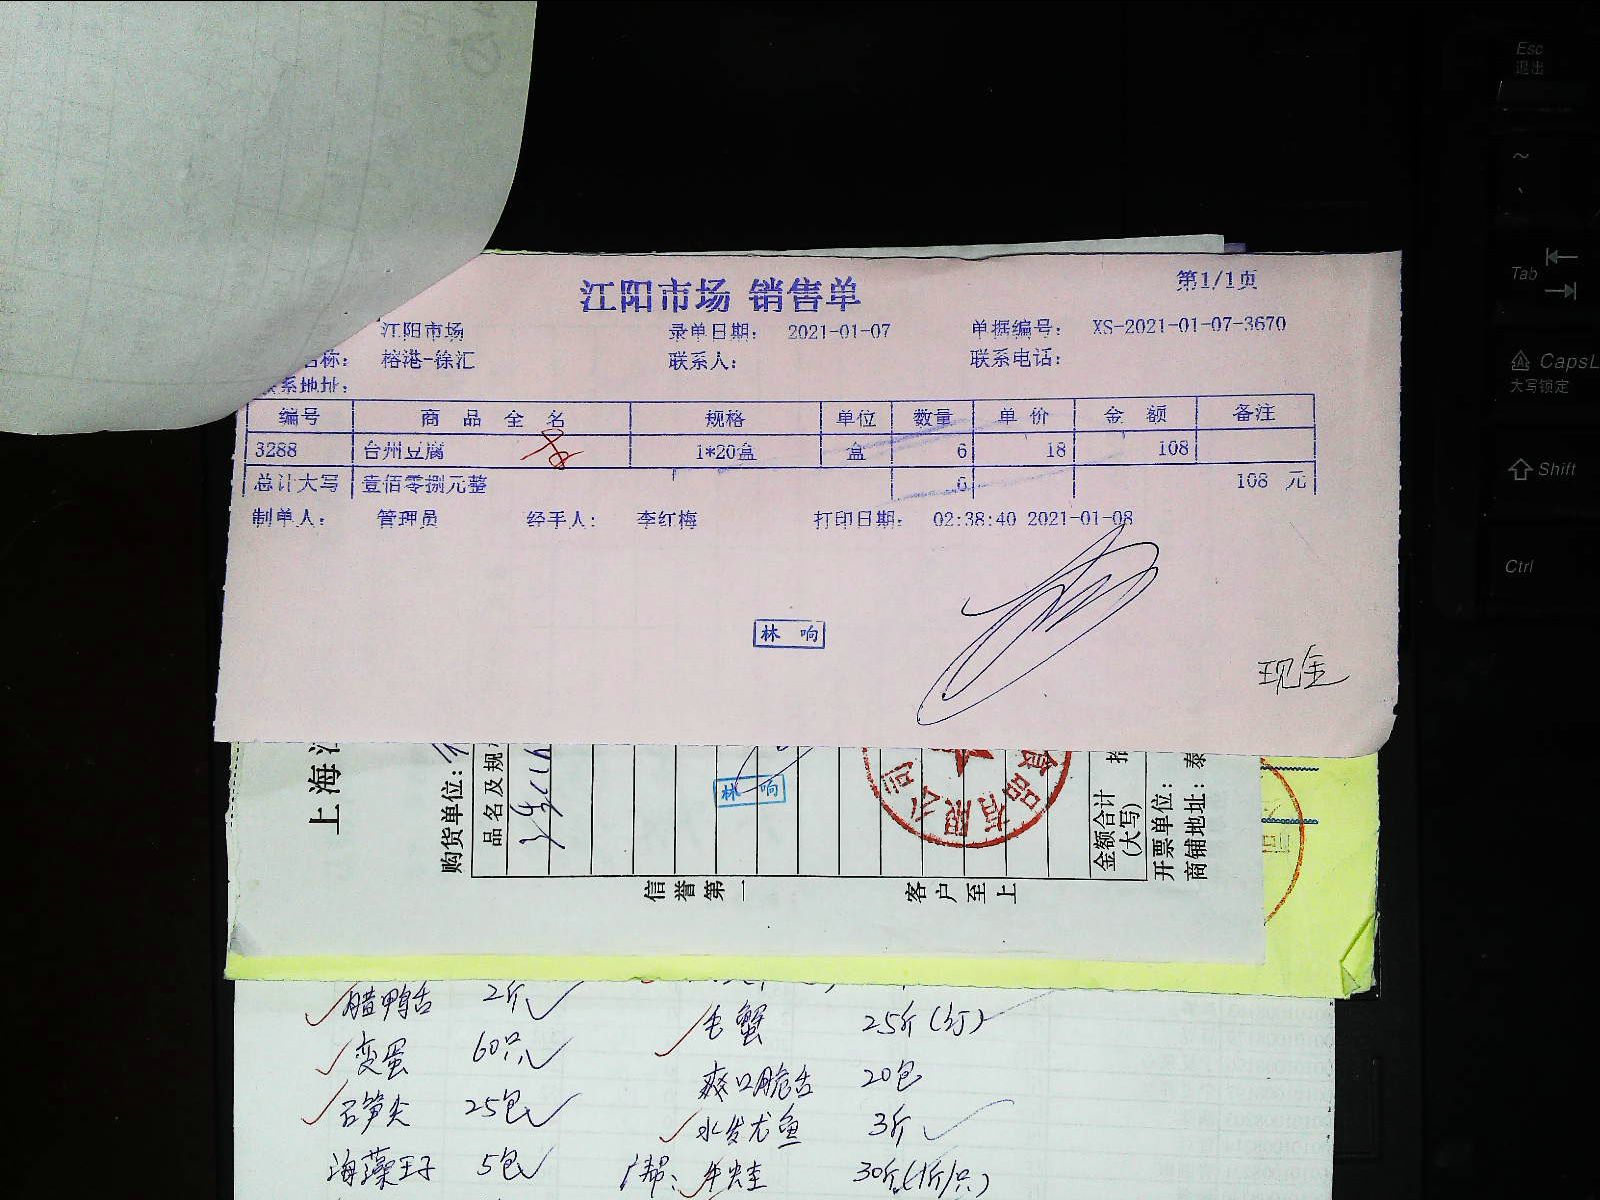 江阳市场 销售单
第1/1页
江阳市场 录单日期： 2021-01-07 单据编号： XS-2021-01-07-3670
名称： 榕港-徐汇 联系人： 联系电话：
联系地址：
编号 商品全名 规格 单位 数量 单价 金额 备注
3288 台州豆腐 1*20盒 盒 6 18 108
总计大写 壹佰零捌元整 6 108 元
制单人： 管理员 经手人： 李红梅 打印日期： 02:38:40 2021-01-08
林响
现金
上海
购货单位：
品名及规
林响
食品有限公司
金额合计
(大写)
开票单位：
商铺地址： 泰
信誉第一 客户至上
腊鸭舌 2斤
变蛋 60只
石笋尖 25包
海藻王子 5包
毛蟹 25斤
爽口脆舌 20包
水发尤鱼 3斤
广帮： 牛蛙 30斤(1斤/只)
Esc
退出
~
Tab
CapsL
大写锁定
Shift
Ctrl